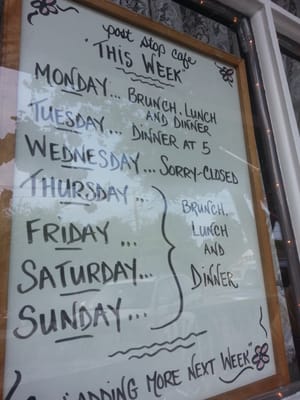 post stop cafe
"THIS WEEK"
MONDAY... BRUNCH, LUNCH
AND DINNER
TUESDAY... DINNER AT 5
WEDNESDAY... SORRY-CLOSED
THURSDAY...
FRIDAY...
SATURDAY...
SUNDAY...
BRUNCH,
LUNCH
AND
DINNER
"ADDING MORE NEXT WEEK"